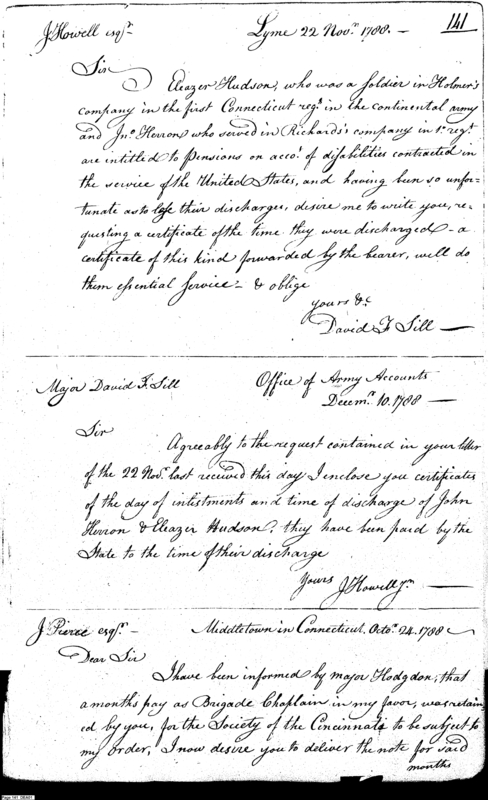 141
J Howell esqr. Lyme 22 Novr. 1788. —
Sir
Eleazer Hudson, who was a Soldier in Holmes's
company in the first Connecticut regt. in the continental army
and Jno. Herron who served in Richards's company in 1t. regt.
are intitled to Pensions on accot. of disabilities contracted in
the service of the United States, and having been so unfor=
tunate as to lose their discharges, desire me to write you, re=
questing a certificate of the time they were discharged – a
certificate of this kind forwarded by the bearer, will do
them essential service – & oblige
yours &c
David F Sill —
Major David F. Sill Office of Army Accounts
Decemr. 10. 1788 —
Sir
Agreeably to the request contained in your letter
of the 22 Novr. last received this day I enclose you certificates
of the day of inlistments and time of discharge of John
Herron & Eleazer Hudson. they have been paid by the
State to the time of their discharge
Yours J Howell jr. —
J Pierce esqr. – Middletown in Connecticut. Octor. 24. 1788 –
Dear Sir
I have been informed by major Hodgdon, that
a months pay as Brigade Chaplain in my favor, was retain
ed by you, for the Society of the Cincinnati to be subject to
my order, I now desire you to deliver the note for said
months